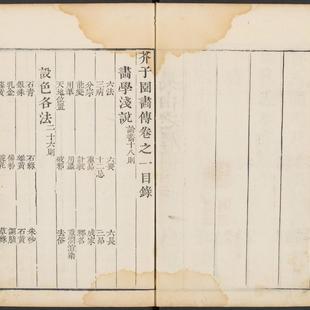 芥子園畫傳卷之一目錄
畫學淺說 論畫十八則
六法 六要 六長
三病 十二忌 三品
分宗 重品 成家
能變 計皴 釋名
用筆 用墨 重潤渲染
天地位置 破邪 去俗
設色各法 二十六則
石青 石綠 朱砂
銀硃 雄黃 石黃
乳金 傅粉 調脂
草綠